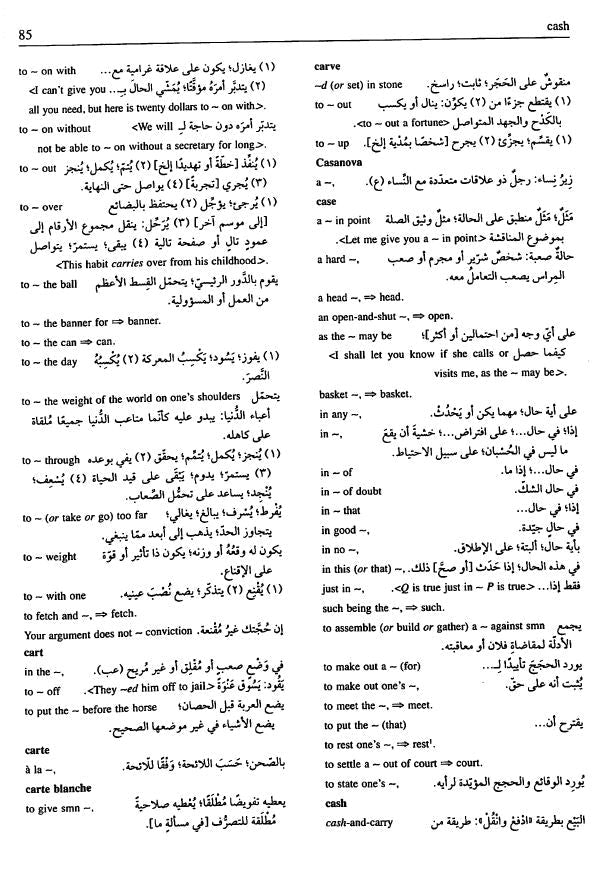 85
cash
to ~ on with (١) يغازل؛ يكون على علاقة غرامية مع...
(٢) يتدبّر أمرَه مؤقّتًا؛ يُمشي الحالَ بـ... I can't give you>
all you need, but here is twenty dollars to ~ on with>.
to ~ on without يتدبّر أمره دون حاجة لـ We will>
not be able to ~ on without a secretary for long>.
to ~ out (١) يُنفّذ [خطّةً أو تهديدًا إلخ] (٢) يُتمّ؛ يُكمل؛ يُنجز
(٣) يُجري [تجربةً] (٤) يواصل حتى النهاية.
to ~ over (١) يُرجئ؛ يؤجّل (٢) يحتفظ بالبضائع
[إلى موسم آخر] (٣) يُرَحِّل: ينقل مجموع الأرقام إلى
عمودٍ تالٍ أو صفحة تالية (٤) يبقى؛ يستمرّ؛ يتواصل
<This habit carries over from his childhood>.
to ~ the ball يقوم بالدَّور الرئيسيّ؛ يتحمّل القِسط الأعظم
من العمل أو المسؤولية.
to ~ the banner for ⇒ banner.
to ~ the can ⇒ can.
to ~ the day (١) يفوز؛ يَسُود؛ يَكْسِبُ المعركة (٢) يُكْسِبُهُ
النَّصرَ.
to ~ the weight of the world on one's shoulders يتحمّل
أعباء الدُّنيا: يبدو عليه كأنّما متاعب الدُّنيا جميعًا مُلقاة
على كاهله.
to ~ through (١) يُنجز؛ يُكمل؛ يُتمّم؛ يحقّق (٢) يفي بوعده
(٣) يستمرّ؛ يدوم؛ يَبْقَى على قيد الحياة (٤) يُسْعِف؛
يُنْجِد؛ يساعد على تحمُّل الصِّعاب.
to ~ (or take or go) too far يُفْرِط؛ يُسْرف؛ يبالغ؛ يغالي؛
يتجاوز الحدّ؛ يذهب إلى أبعد ممّا ينبغي.
to ~ weight يكون له وقعُهُ أو وزنه؛ يكون ذا تأثير أو قوّة
على الإقناع.
to ~ with one (١) يُقْنِع (٢) يتذكّر؛ يضع نُصْبَ عينيه.
to fetch and ~, ⇒ fetch.
Your argument does not ~ conviction. إن حُجّتك غيرُ مُقْنعة.
cart
in the ~, في وَضْعٍ صعبٍ أو مُقْلِقٍ أو غير مُريح (عب).
to ~ off يَقُود؛ يَسُوق عَنْوَةً <They ~ed him off to jail>.
to put the ~ before the horse يضع العربة قبل الحصان؛
يضع الأشياء في غير موضعها الصحيح.
carte
à la ~, بالصّحن؛ حَسَبَ اللائحة؛ وَفْقًا للّائحة.
carte blanche
to give smn ~, يعطيه تفويضًا مُطْلَقًا؛ يُعْطيه صلاحيةً
مُطْلَقة للتصرُّف [في مسألةٍ ما].
carve
~d (or set) in stone منقوشٌ على الحَجَر؛ ثابت؛ راسخ.
to ~ out (١) يقتطع جزءًا من (٢) يكوِّن: ينال أو يكسب
بالكَدْح والجهد المتواصل <to ~ out a fortune>.
to ~ up (١) يقسِّم؛ يجزِّئ (٢) يجرح [شخصًا بمُدْية إلخ].
Casanova
a ~, زِيرُ نِساء: رجلٌ ذو علاقات متعدّدة مع النِّساء (ع).
case
a ~ in point مَثَلٌ؛ مَثَلٌ منطبق على الحالة؛ مثلٌ وثيق الصلة
بموضوع المناقشة <Let me give you a ~ in point>.
a hard ~, حالةٌ صعبة: شخصٌ شرّير أو مجرم أو صعب
المِراس يصعب التعاملُ معه.
a head ~, ⇒ head.
an open-and-shut ~, ⇒ open.
as the ~ may be على أيّ وجه [من احتمالين أو أكثر]؛
كيفما حصل I shall let you know if she calls or>
visits me, as the ~ may be>.
basket ~, ⇒ basket.
in any ~, على أية حال؛ مهما يكن أو يَحْدُثْ.
in ~, إذا؛ في حال...؛ على افتراض...؛ خشيةَ أن يقعَ
ما ليس في الحُسْبان؛ على سبيل الاحتياط.
in ~ of في حال...؛ إذا ما.
in ~ of doubt في حال الشكّ.
in ~ that إذا؛ في حال...
in good ~, في حالٍ جيّدة.
in no ~, بأية حال؛ ألبتة؛ على الإطلاق.
in this (or that) ~, في هذه الحال؛ إذا حَدَث [أو صحَّ] ذلك...
just in ~, فقط إذا... <Q is true just in ~ P is true>.
such being the ~, ⇒ such.
to assemble (or build or gather) a ~ against smn يجمع
الأدلّة لمقاضاة فلان أو معاقبته.
to make out a ~ (for) يورد الحجَجَ تأييدًا لـ...
to make out one's ~, يُثْبت أنه على حقّ.
to meet the ~, ⇒ meet.
to put the ~ (that) يقترح أن...
to rest one's ~, ⇒ rest¹.
to settle a ~ out of court ⇒ court.
to state one's ~, يُورِد الوقائع والحجج المؤيّدة لرأيه.
cash
cash-and-carry البَيْع بطريقة «ادْفعْ وانْقُلْ»: طريقة من